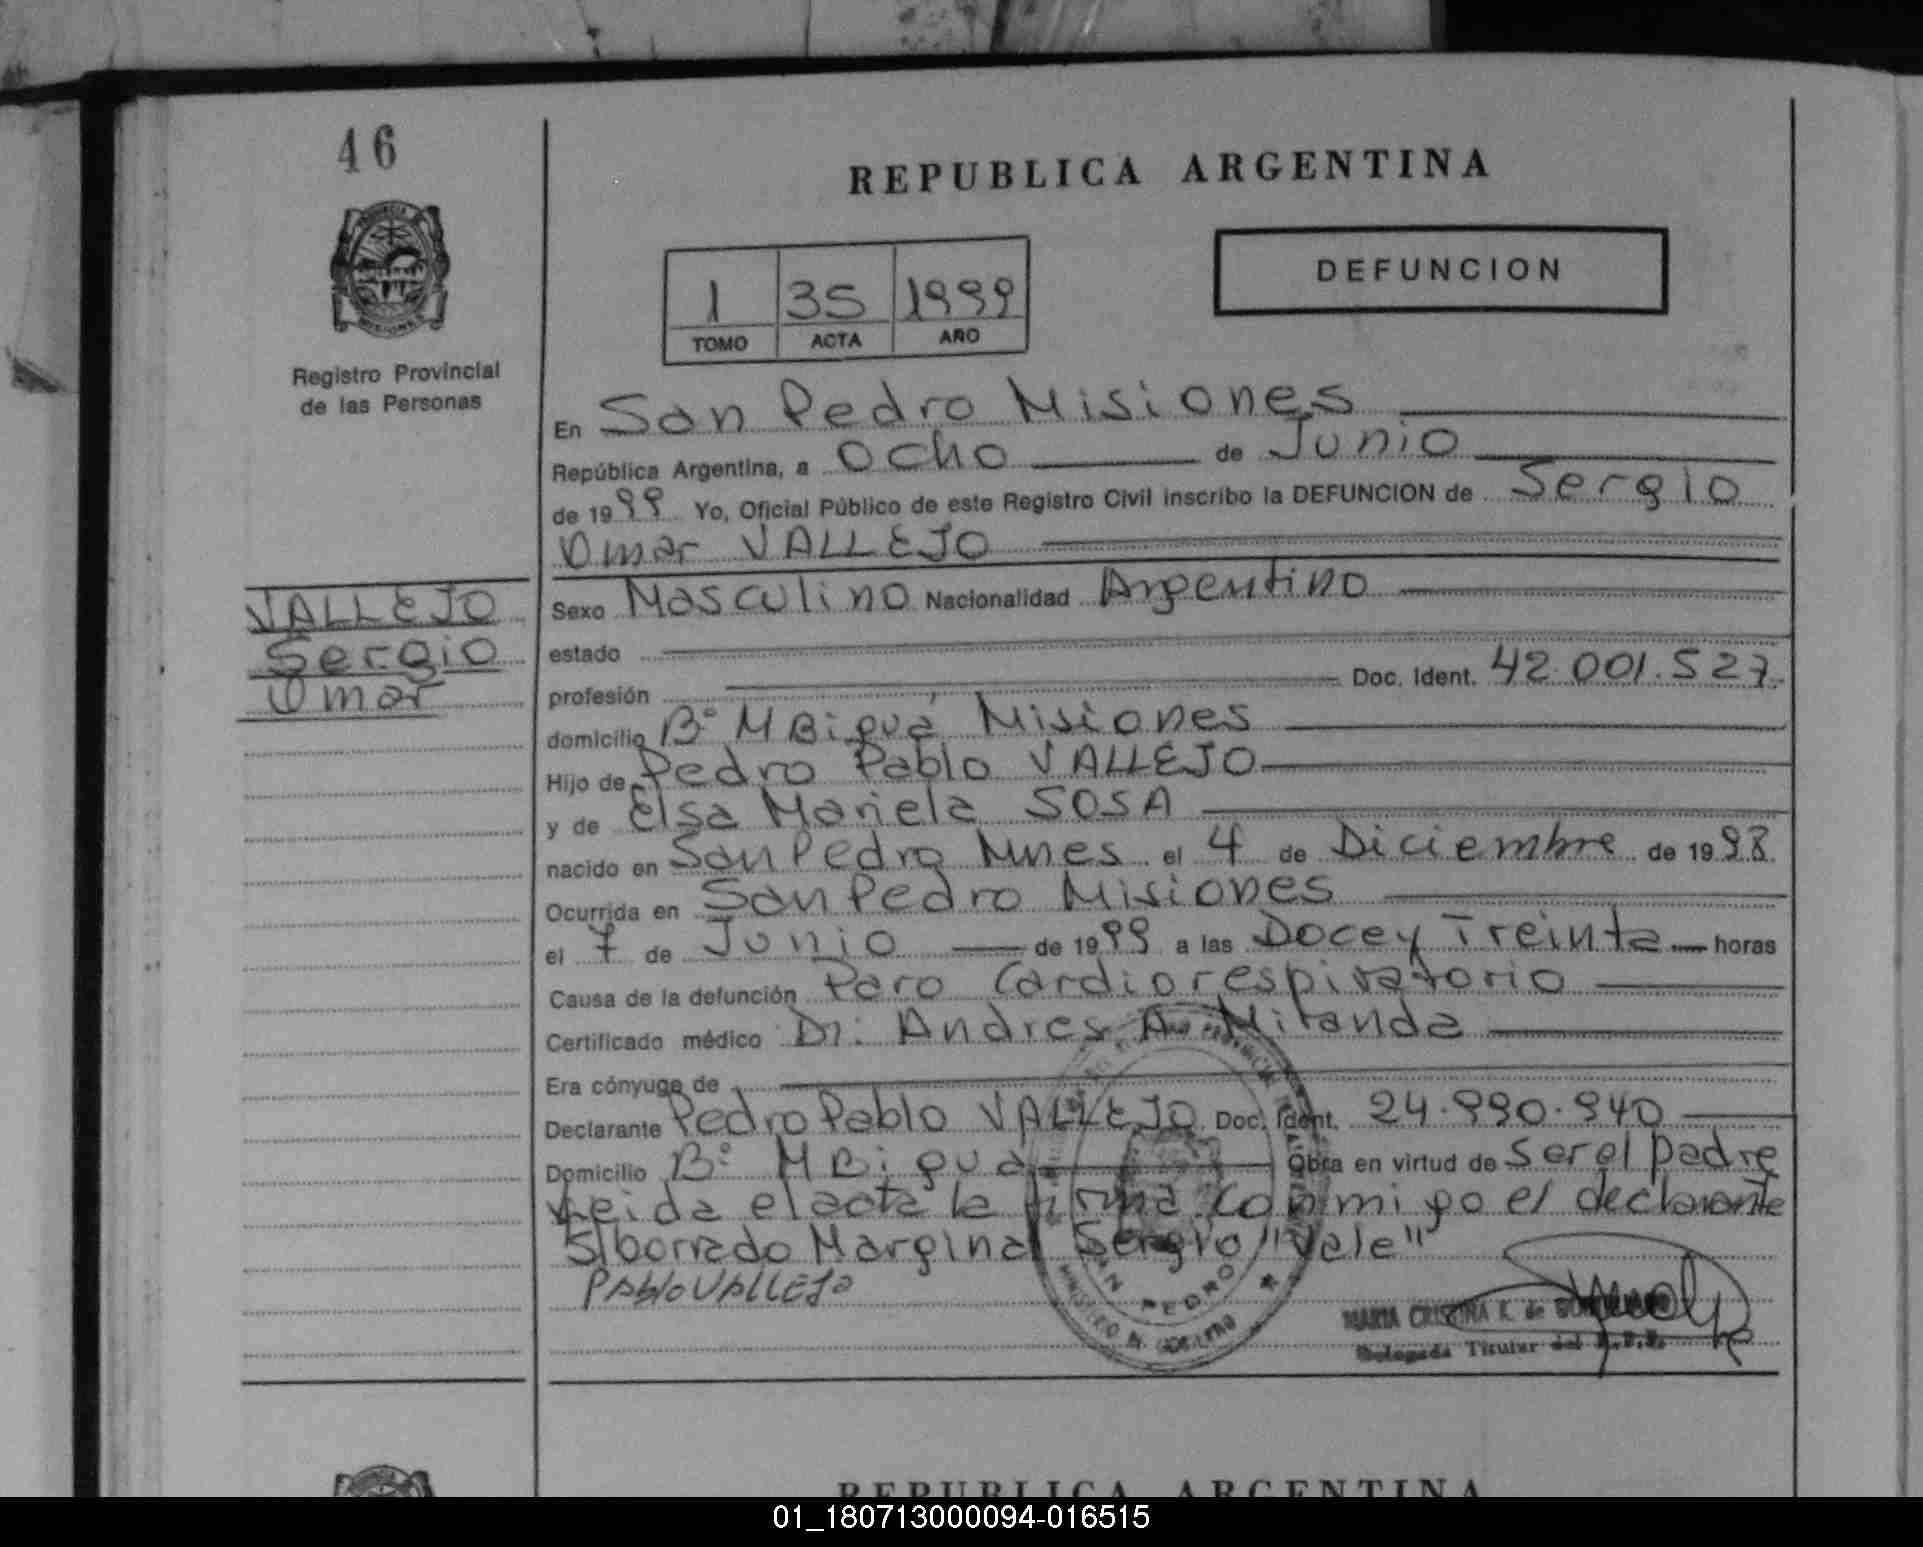 46
REPUBLICA ARGENTINA
DEFUNCION
1 35 1999
TOMO ACTA AÑO
Registro Provincial
de las Personas
En San Pedro Misiones
República Argentina, a Ocho de Junio
de 1999 Yo, Oficial Público de este Registro Civil inscribo la DEFUNCION de Sergio
Omar VALLEJO
VALLEJO
Sergio
Omar
Sexo Masculino Nacionalidad Argentino
estado
profesión Doc. Ident. 42.001.527
domicilio Bº MBiguá Misiones
Hijo de Pedro Pablo VALLEJO
y de Elsa Mariela SOSA
nacido en San Pedro Mnes el 4 de Diciembre de 1998
Ocurrida en San Pedro Misiones
el 7 de Junio de 1999 a las Doce y Treinta horas
Causa de la defunción Paro Cardiorespiratorio
Certificado médico Dr. Andres A. Miranda
Era cónyuge de
Declarante Pedro Pablo VALLEJO Doc. Ident. 24.990.940
Domicilio Bº MBigua Obra en virtud de ser el padre
Leida el acta la firma conmigo el declarante
S/borrado Marginal Sergio "Vale"
Pablo VALLEJO
SAN PEDRO
MARIA CRISTINA K. de
Delegada Titular del R.P.P.
REPUBLICA ARGENTINA
01_180713000094-016515